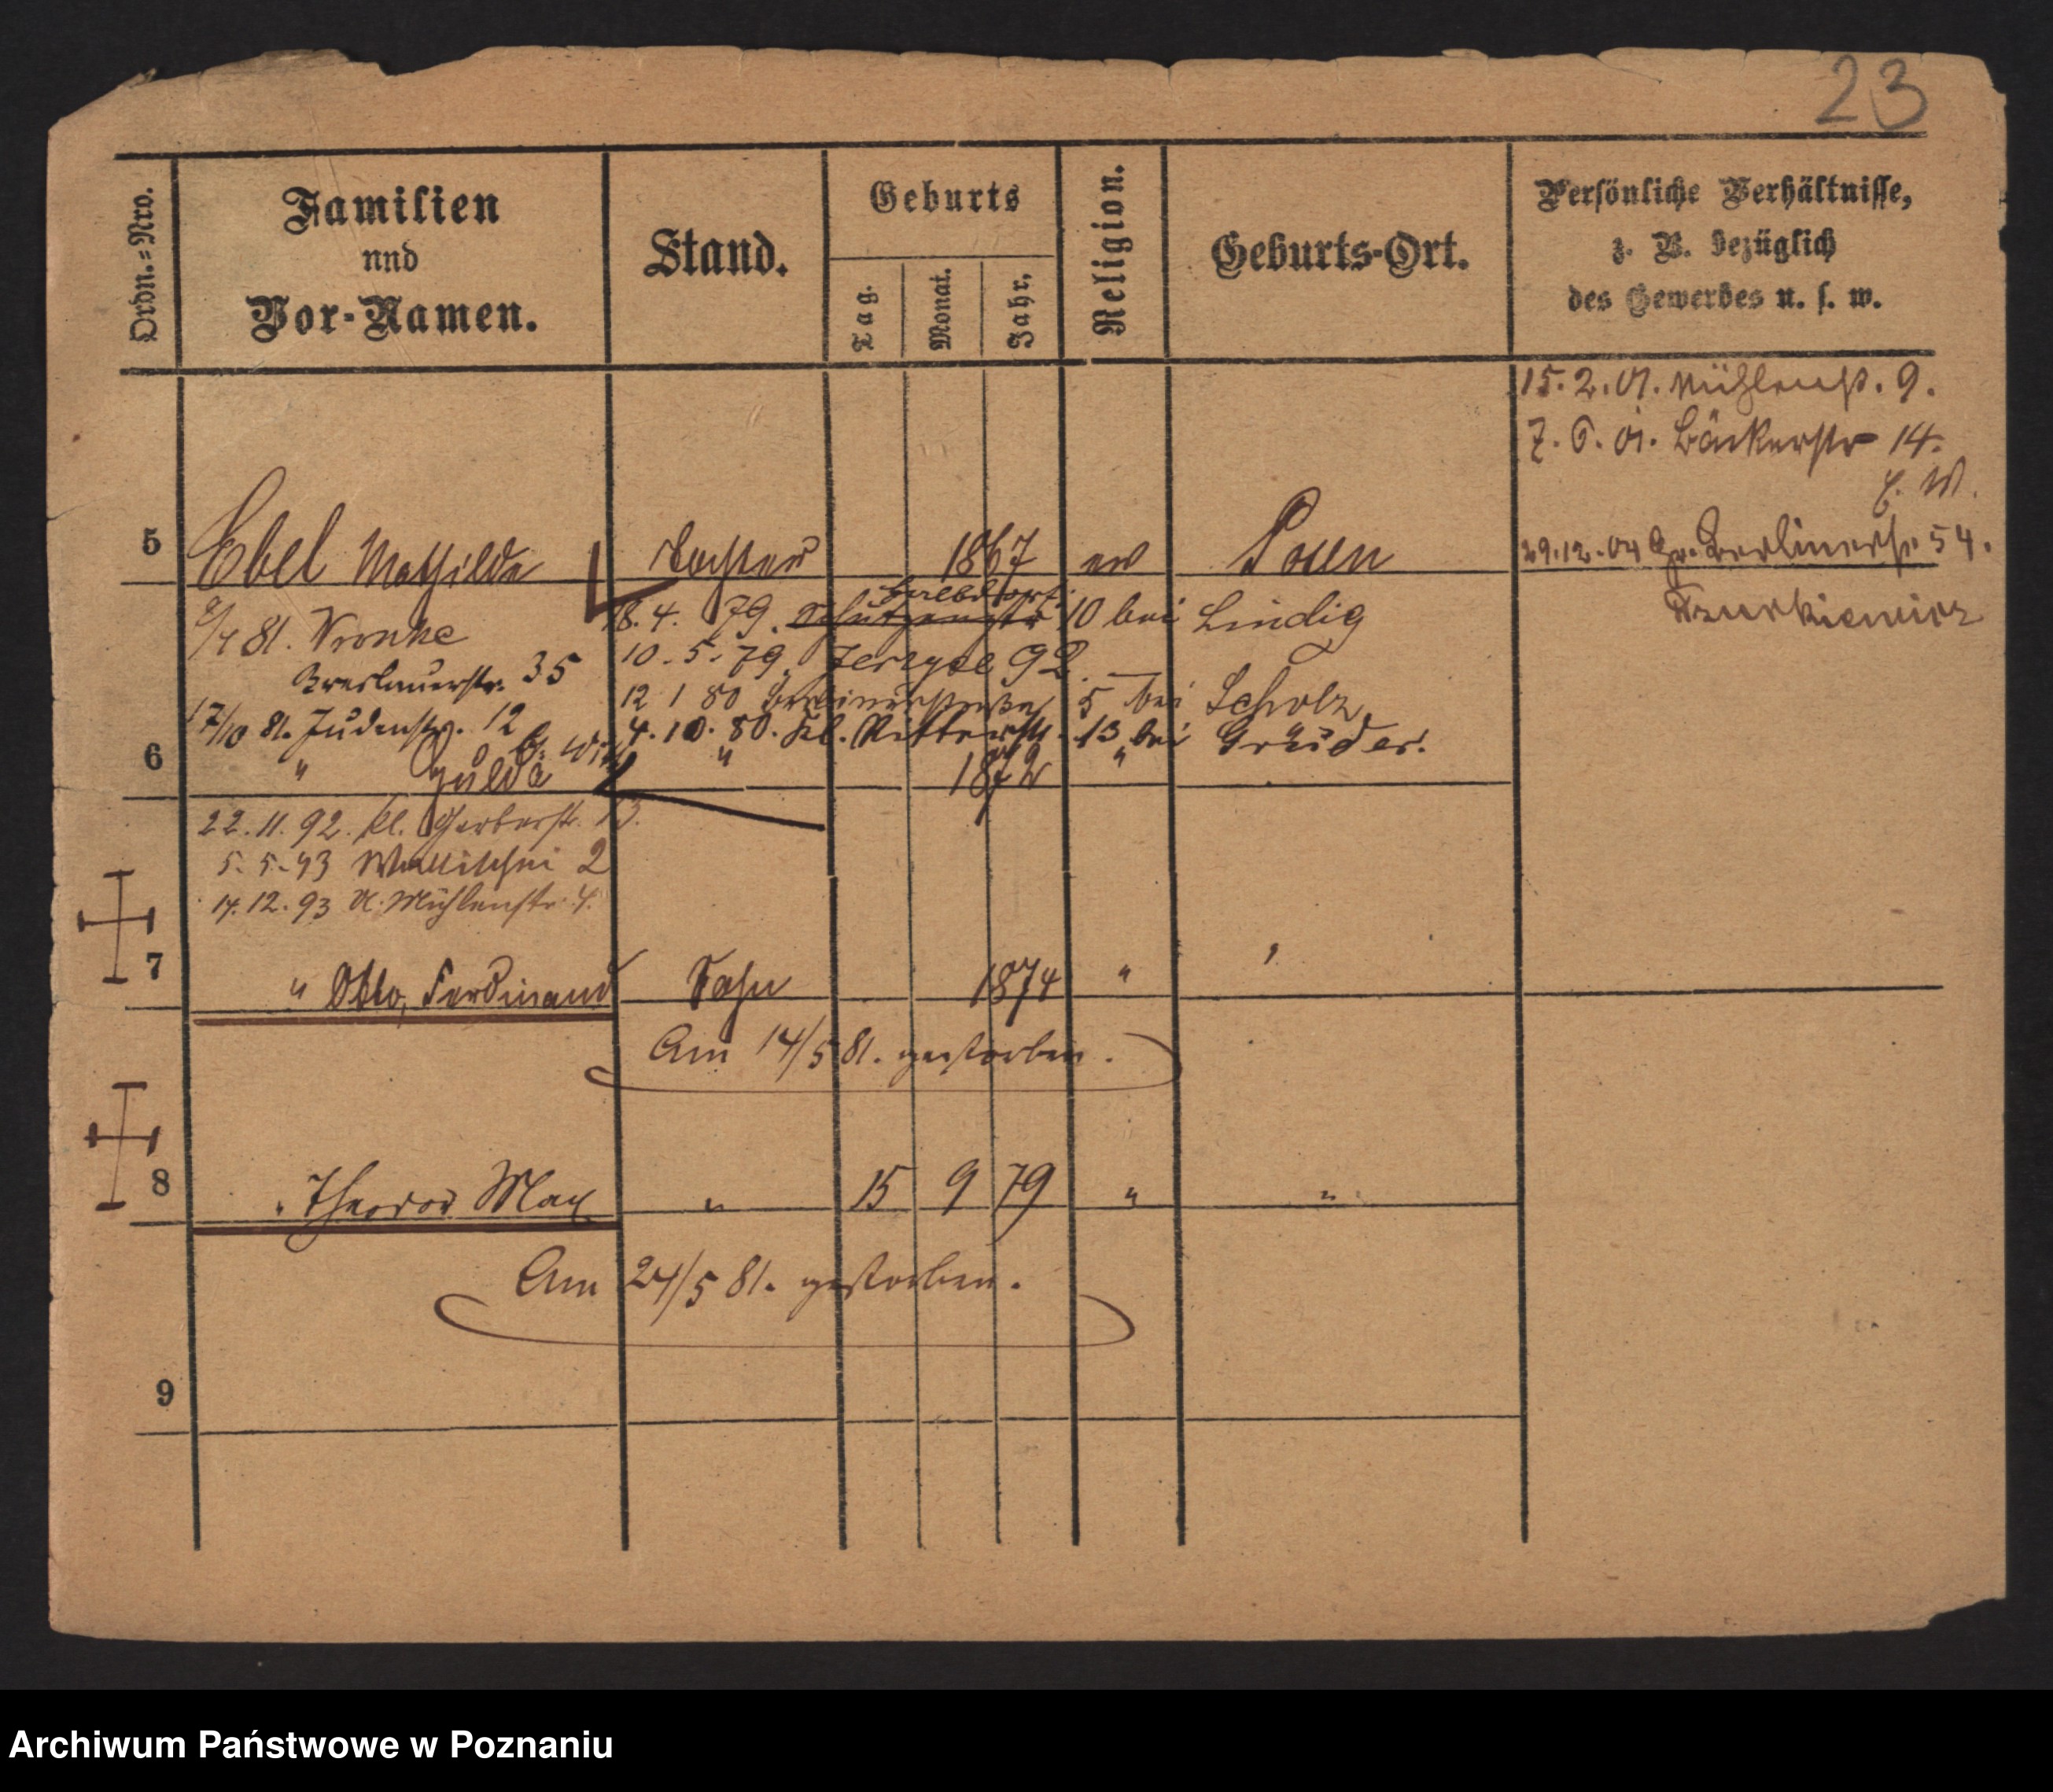 23
Ordn.=Nro.
Familien
und
Vor-Namen.
Stand.
Geburts
Tag.
Monat.
Jahr.
Religion.
Geburts-Ort.
Persönliche Verhältnisse,
z. B. bezüglich
des Gewerbes u. s. w.
15.2.01. Mühlenstr. 9.
7.6.01. Bäckerstr 14.
E. W.
5 Ebel Mathilde Tochter 1867 ev Posen
29.12.04 Gr. Berlinerstr. 54.
81. Wronke
Breslauerstr. 35
17/10 81. Judenstr. 12
18.4. 79. Schützenstr 10 bei Lindig
10.5.79. Jerzyce 92.
12 1 80 Berlinerstraße 5 bei Scholz
4.10.80. Kl. Ritterstr. 13 bei Gräder.
6 " Hulda " 1872 "
22.11.92. Kl. Gerberstr. 13.
5.5.93 Wallischei 2
14.12.93 N. Mühlenstr. 4.
7 " Otto, Ferdinand Sohn 1874 "
Am 14/5 81. gestorben.
8 " Theodor Max " 15 9 79 " "
Am 24/5 81. gestorben.
9
Archiwum Państwowe w Poznaniu